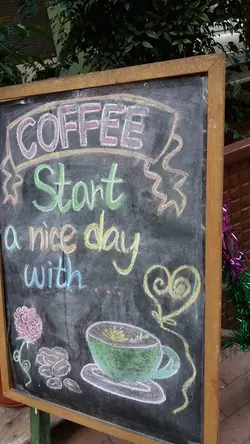 COFFEE
Start
a nice day
with....